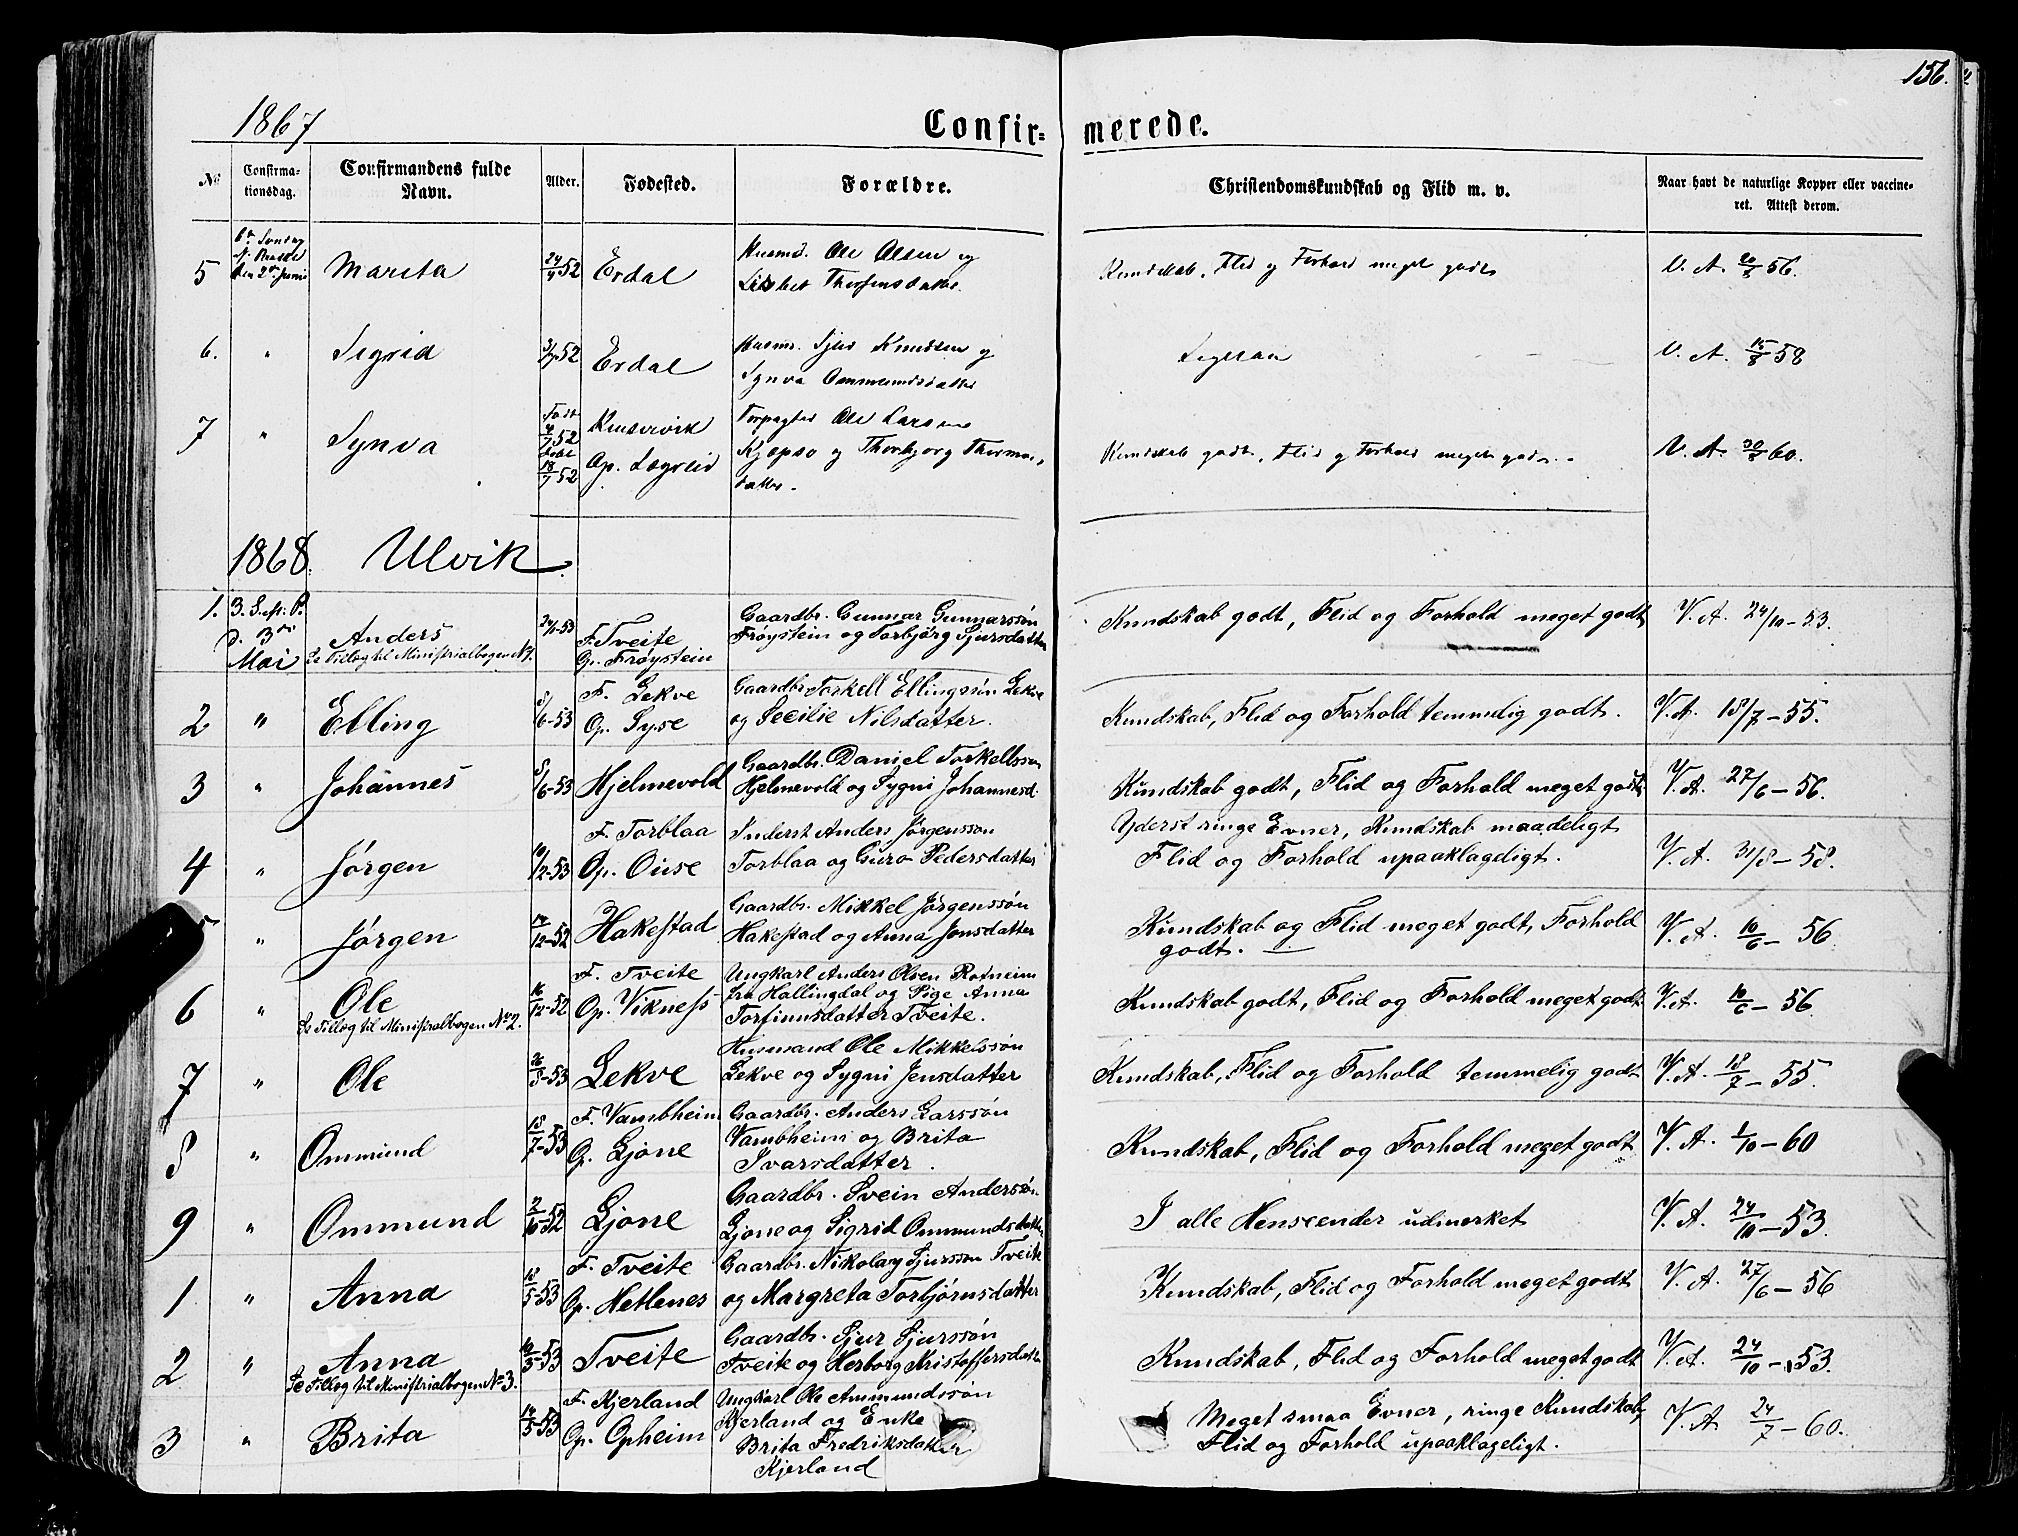 156.
1867
Confir= merede.
No
Confirma-
tionsdag.
Confirmandens fulde
Navn.
Alder.
Fødested.
Forældre.
Christendomskundskab og Flid m. v.
Naar havt de naturlige Kopper eller vaccine-
ret. Attest derom.
5 6te Søndag
den 2den Juni
Marita 24/4 52 Erdal Husmd. Ole Olsen og
Lisbet Thorfinsdatter.
Kundskab, Flid og Forhold meget godt V. A. 20/8 56.
6. " Sigrid 3/7 52 Erdal Husm. Sjur Knudsen og
Synva Ommundsdatter
Ligesaa V. A. 15/8 58
7 " Synva Født 4/7 52
Døbt 18/7 52
Kinservik
Op. Lægreid
Forpagter Ole Larsen
Kjepso og Thorbjørg Thormos-
datter.
Kundskab godt, Flid og Forhold meget godt. V. A. 30/8 60.
1868. Ulvik.
1. 3. S. eft. P.
d. 3die
Mai
Anders
Se Tillæg til Ministrialbogen No 1.
24/1-53
F. Tveite
Op. Frøystein
Gaardbr. Gunnar Gunnarssøn
Frøystein og Torbjørg Sjursdatter
Kundskab godt, Flid og Forhold meget godt V. A. 24/10-53.
2 " Elling 8/6-53 F. Lekve
Op. Syse
Gaardbr. Torkell Ellingssøn Lekve
og Secilie Nilsdatter.
Kundskab, Flid og Forhold temmelig godt. V. A. 18/7-55.
3 " Johannes 8/6-53 Hjelmevold Gaardbr. Daniel Torkellssøn
Hjelmevold og Sygni Johannesd.
Kundskab godt, Flid og Forhold meget godt. V. A. 27/6-56.
4 " Jørgen 10/12-53 F. Torblaa
Op. Ouse
Inderst Anders Jørgensson
Torblaa og Guro Pedersdatter
Yderst ringe Evner, Kundskab maadeligt
Flid og Forhold upaaklageligt. V. A. 31/8-58.
5 " Jørgen 14/12-52 Hakestad Gaardbr. Mikkel Jørgenssøn
Hakestad og Anna Jonsdatter
Kundskab og Flid meget godt, Forhold
godt. V. A. 10/6-56
6 " Ole
Se Tillæg til Ministrialbogen No 2.
16/12-52 F. Tveite
Op. Vikness
Ungkarl Anders Olsen Rotneim
fra Hallingdal og Pige Anna
Torfinnsdatter Tveite.
Kundskab godt, Flid og Forhold meget godt V. A. 10/6-56
7 " Ole 26/8-53 Lekve Husmand Ole Mikkelssøn
Lekve og Sygni Jensdatter
Kundskab, Flid og Forhold temmelig godt V. A. 18/7-55.
8 " Ommund 18/7-53 F. Vambheim
Op. Ljone
Gaardbr. Anders Larssøn
Vambheim og Brita
Ivarsdatter.
Kundskab, Flid og Forhold meget godt V. A. 1/10-60
9 " Ommund 2/10-52 Ljone Gaardbr. Svein Anderssøn
Ljone og Sigrid Ommundsdatter
I alle Henseender udmerket V. A. 24/10-53.
1 " Anna 18/5-53 F. Tveite
Op. Hetlenes
Gaardbr. Nikolay Sjurssøn Tveite
og Margreta Torbjørnsdatter
Kundskab, Flid og Forhold meget godt V. A. 27/6-56
2 " Anna
Se Tillæg til Ministrialbogen No 3.
10/3-53 Tveite Gaardbr. Sjur Sjurssøn
Tveite og Herborg Kristoffersdatter
Kundskab, Flid og Forhold meget godt V. A. 24/10-53.
3 " Brita 14/5-53 F. Kjerland
Op. Opheim
Ungkarl Ole Ammundssøn
Kjerland og Enke
Brita Fredriksdatter
Kjerland
Meget smaa Evner, ringe Kundskab,
Flid og Forhold upaaklageligt. V. A. 24/7-60.